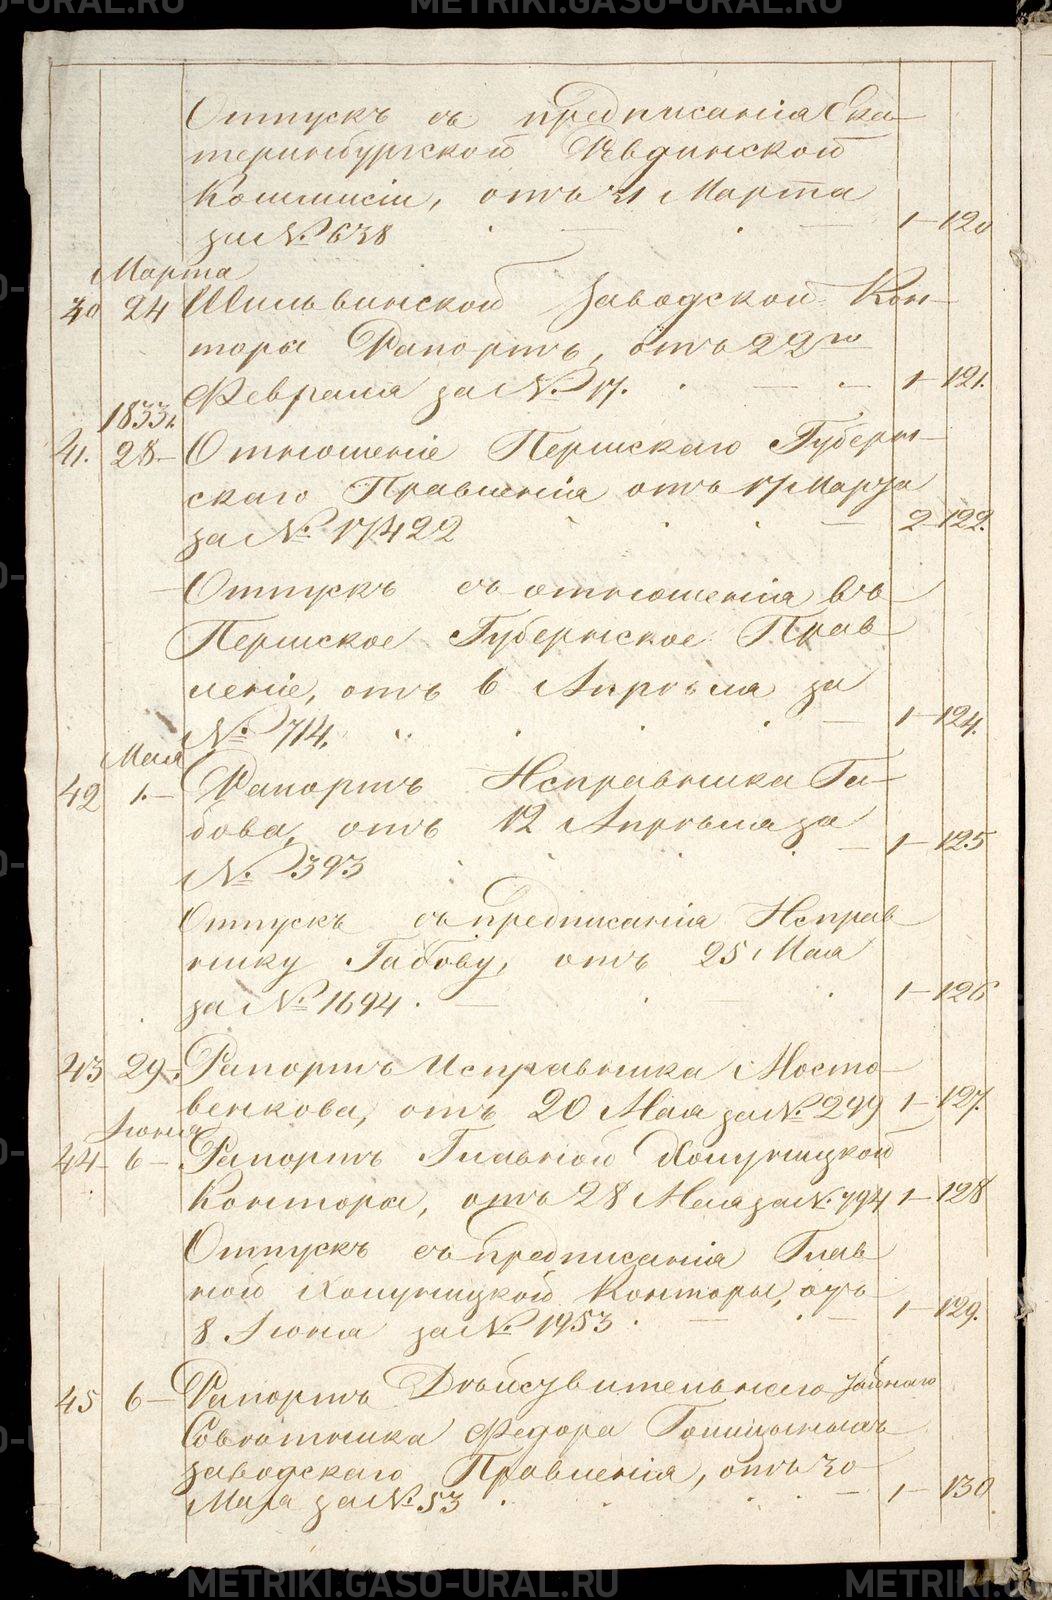 METRIKI.GASO-URAL.RU METRIKI.GASO-URAL.RU
Отпускъ съ предписанія Ека-
теринбургской Ревдинской
Коммисіи, отъ 21 Марта
за № 638 . — . — 1 — 120
Марта
40 24 Шильвинской Заводской Кон-
торы Рапортъ, отъ 22го
Февраля за № 17. . — . — 1 — 121.
1833г.
41. 28 — Отношеніе Пермскаго Губерн-
скаго Правленія отъ 17 Марта
за № 17422 . . . — 2 — 122.
Отпускъ съ отношенія въ
Пермское Губернское Прав-
леніе, отъ 6 Апрѣля за
№ 714. . . . . — 1 — 124.
Мая
42 1. — Рапортъ Исправника Га-
бова, отъ 12 Апрѣля за
№ 393 . . . . — 1 — 125
Отпускъ съ предписанія Исправ-
нику Габову, отъ 25 Мая
за № 1694 . — . . 1 — 126
43 29 . Рапортъ Исправника Мосто-
венкова, отъ 20 Мая за № 299 1 — 127.
Іюня
44 — 6 — Рапортъ Главной Холуницкой
Конторы, отъ 28 Мая за № 794 1 — 128
Отпускъ съ предписанія Глав-
ной Холуницкой Конторы, отъ
8 Іюня за № 1953 . — . — 1 — 129.
45 6 — Рапортъ Дѣйствительнаго Тайнаго
Совѣтника Федора Голицынымъ
заводскаго Правленія, отъ 30
Мая за № 53 . . . . — 1 — 130
METRIKI.GASO-URAL.RU